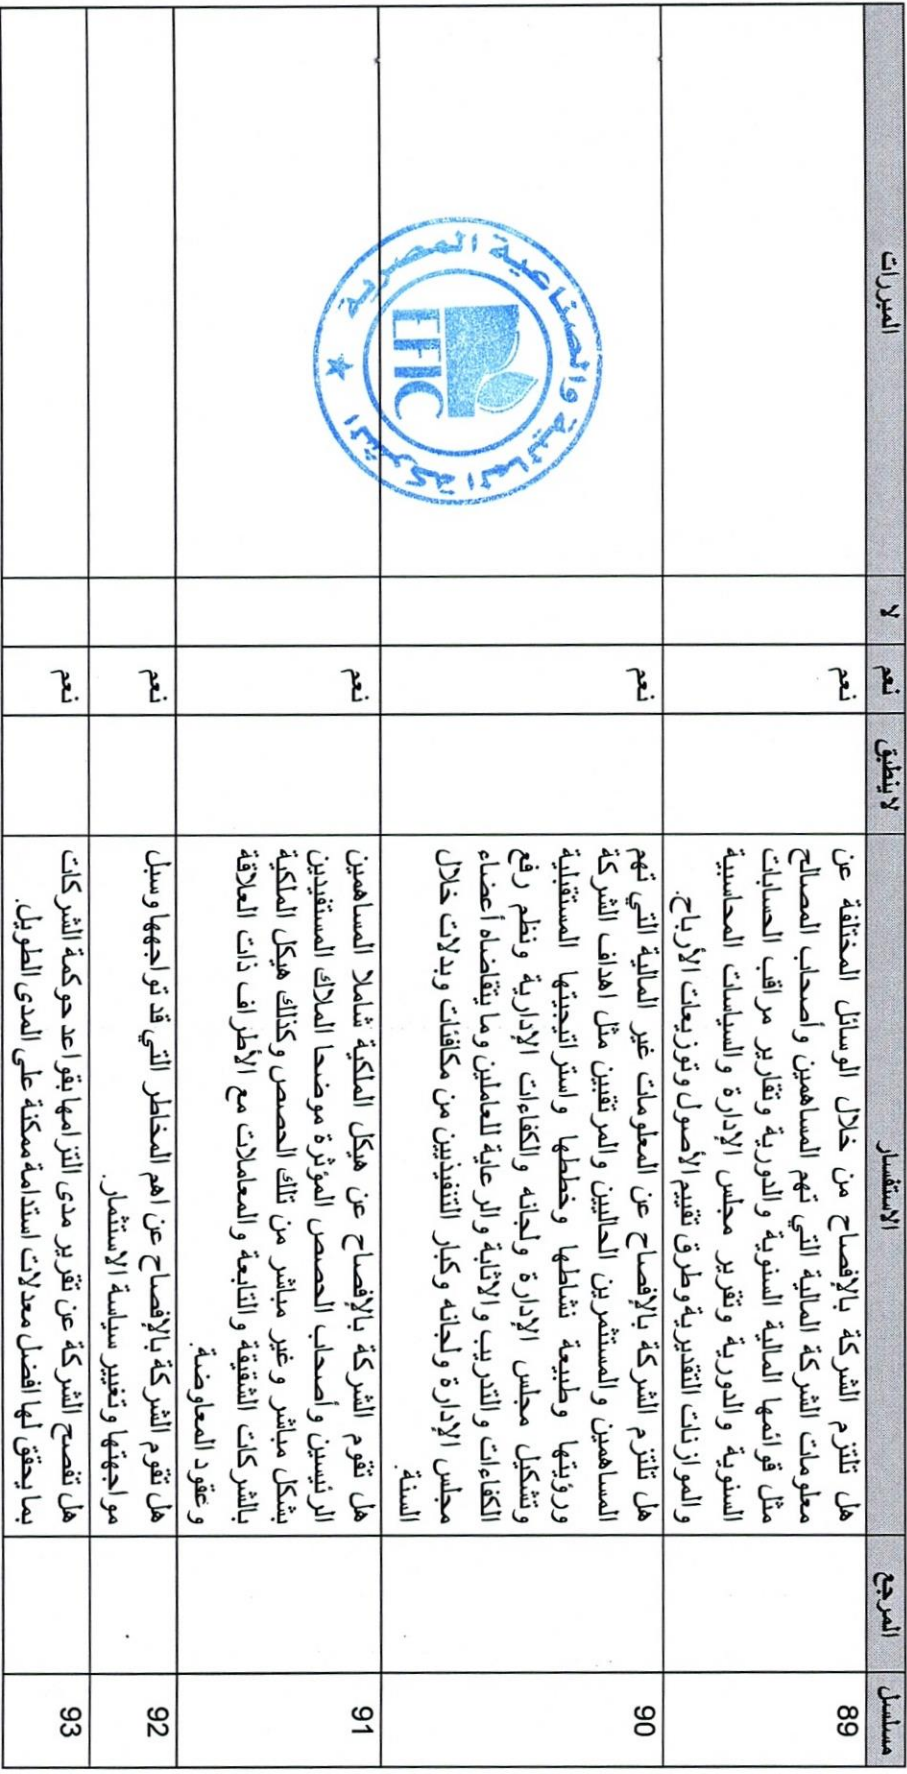 مسلسل المرجع الاستفسار لاينطبق نعم لا المبررات
89 هل تلتزم الشركة بالإفصاح من خلال الوسائل المختلفة عن نعم
معلومات الشركة المالية التي تهم المساهمين وأصحاب المصالح
مثل قوائمها المالية السنوية والدورية وتقارير مراقب الحسابات
السنوية والدورية وتقرير مجلس الإدارة والسياسات المحاسبية
والموازنات التقديرية وطرق تقييم الأصول وتوزيعات الأرباح.
90 هل تلتزم الشركة بالإفصاح عن المعلومات غير المالية التي تهم نعم
المساهمين والمستثمرين الحاليين والمرتقبين مثل اهداف الشركة
ورؤيتها وطبيعة نشاطها وخططها واستراتيجيتها المستقبلية
وتشكيل مجلس الإدارة ولجانه والكفاءات الإدارية ونظم رفع
الكفاءات والتدريب والاثابة والرعاية للعاملين وما يتقاضاه أعضاء
مجلس الإدارة ولجانه وكبار التنفيذيين من مكافئات وبدلات خلال
السنة.
91 هل تقوم الشركة بالإفصاح عن هيكل الملكية شاملا المساهمين نعم
الرئيسين وأصحاب الحصص المؤثرة موضحا الملاك المستفيدين
بشكل مباشر وغير مباشر من تلك الحصص وكذلك هيكل الملكية
بالشركات الشقيقة والتابعة والمعاملات مع الأطراف ذات العلاقة
وعقود المعاوضة.
92 هل تقوم الشركة بالإفصاح عن اهم المخاطر التي قد تواجهها وسبل نعم
مواجهتها وتغيير سياسة الاستثمار.
93 هل تفصح الشركة عن تقرير مدى التزامها بقواعد حوكمة الشركات نعم
بما يحقق لها افضل معدلات استدامة ممكنة على المدى الطويل.
الشركة المالية والصناعية المصرية
EFIC